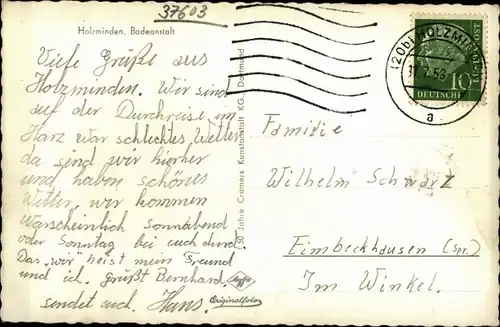 37603
Holzminden. Badeanstalt
Viele Grüße aus
Holzminden. Wir sind
auf der Durchreise im
Harz war schlechtes Wetter
da sind wir hierher
und haben schönes
Wetter, wir kommen
Warscheinlich Sonnabend
oder Sonntag bei euch durch.
Das "wir" heist mein Freund
und ich. grüßt Bernhard.
sendet euch Hans.
50 Jahre Cramers Kunstanstalt KG., Dortmund
Agfa
Originalfoto
(20b) HOLZMINDEN
a
10
DEUTSCHE
Familie
Wilhelm Schwarz
Eimbeckhausen (Spr.)
Im Winkel.